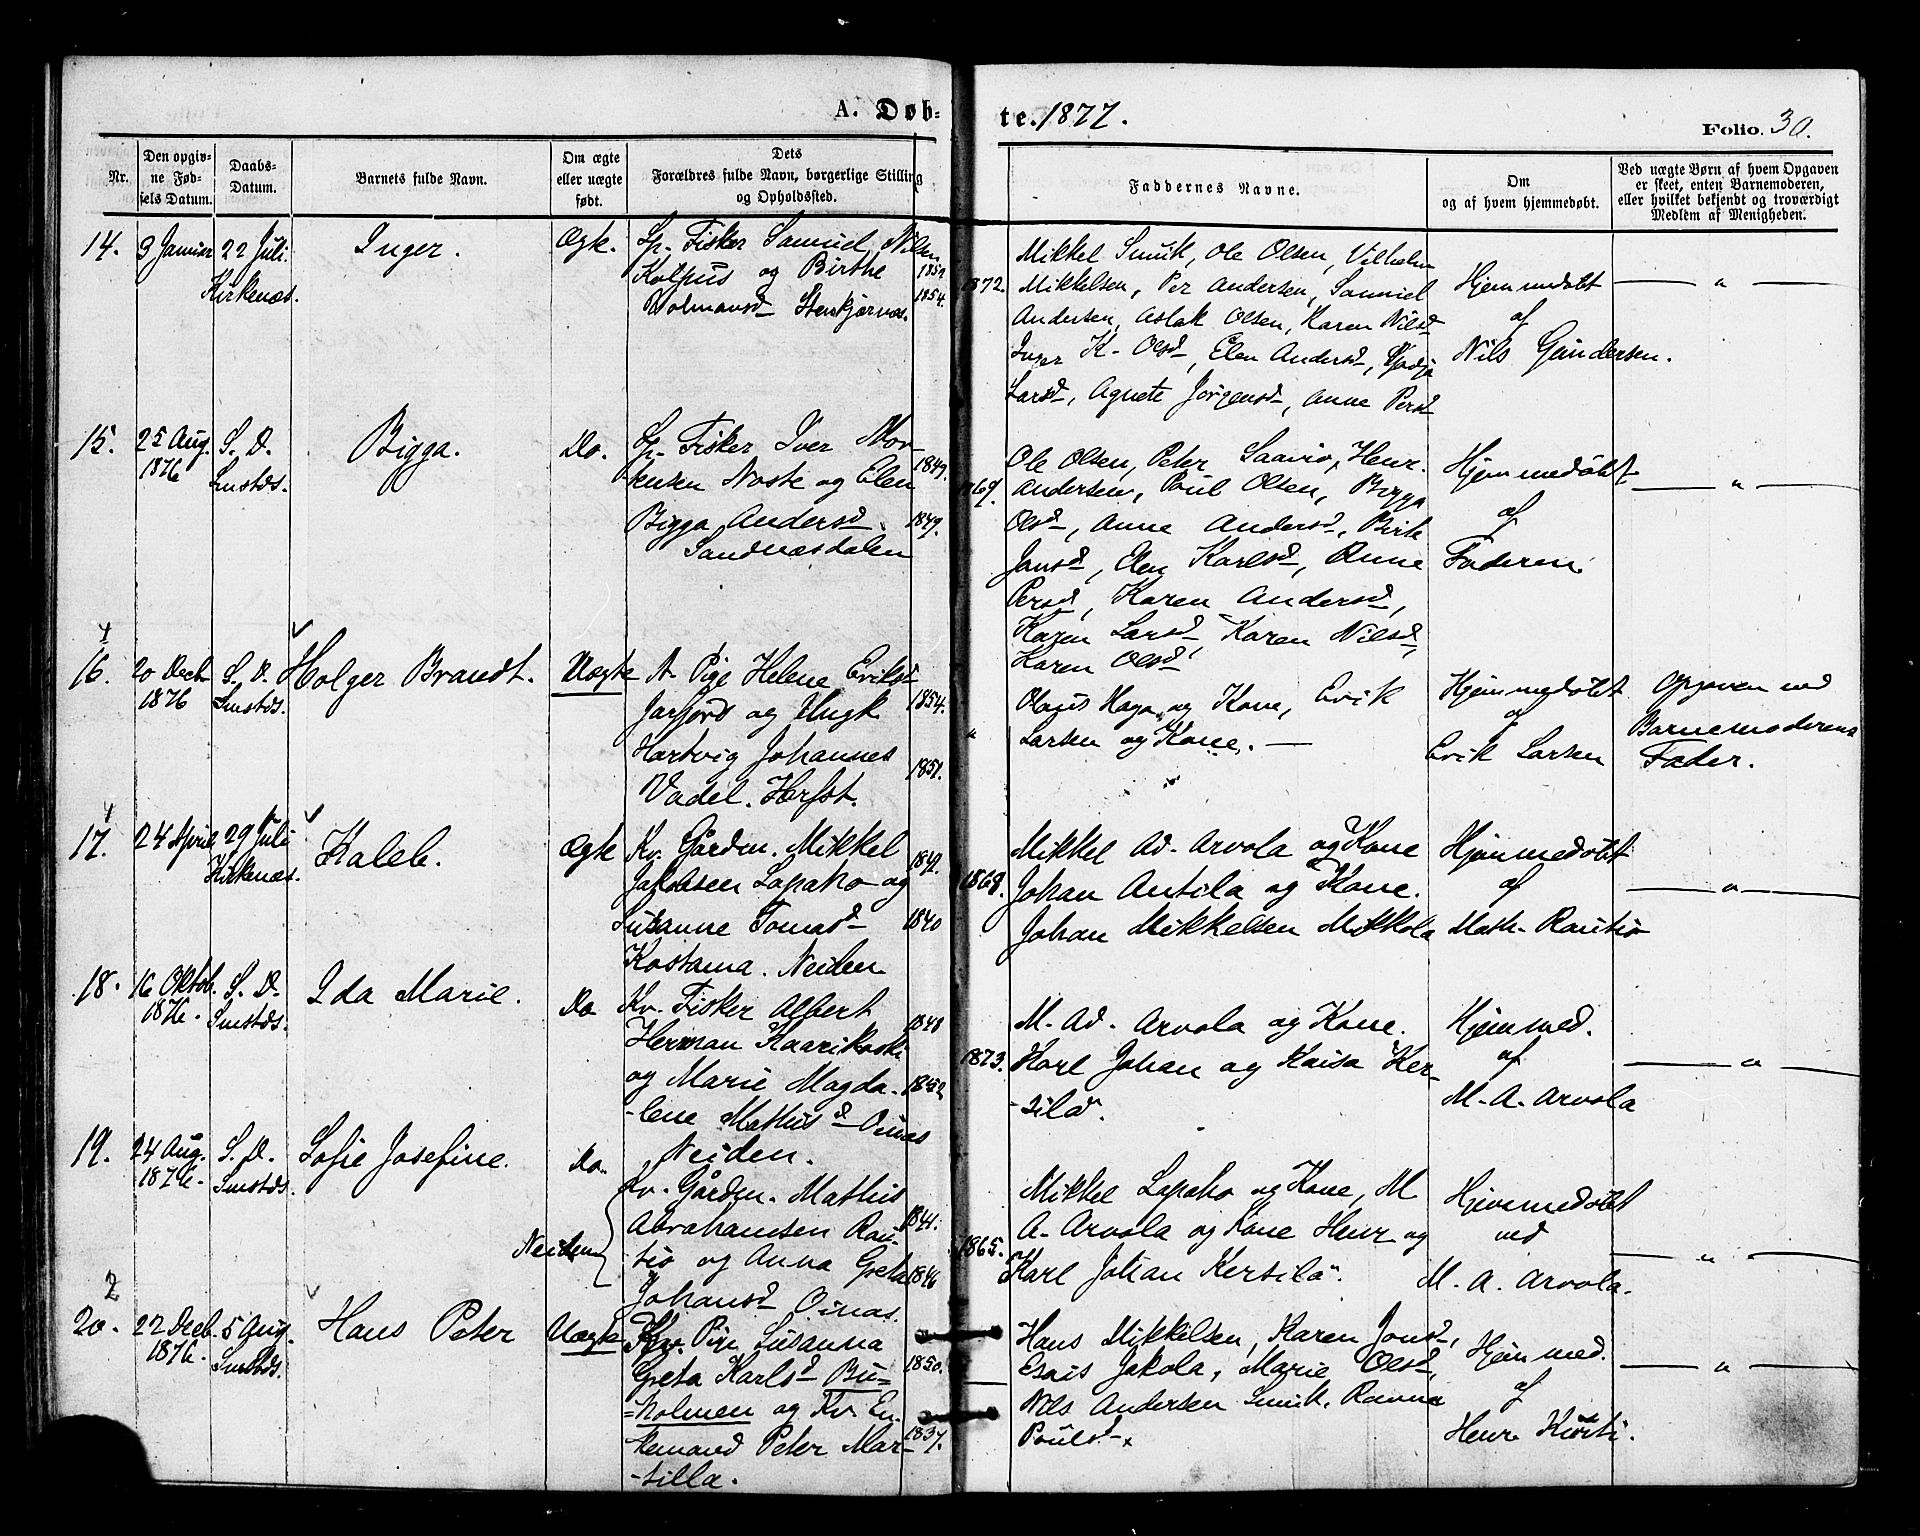 A. Døb-
te. 1877.
Folio. 30.
Nr.
Den opgiv-
ne Fød-
sels Datum.
Daabs-
Datum.
Barnets fulde Navn.
Om ægte
eller uægte
født.
Dets
Forældres fulde Navn, borgerlige Stilling
og Opholdssted.
Faddernes Navne.
Om
og af hvem hjemmedøbt.
Ved uægte Børn af hvem Opgaven
er skeet, enten Barnemoderen,
eller hvilket bekjendt og troværdigt
Medlem af Menigheden.
14.
9 Januar
22 Juli
Kirkenæs.
Inger.
Ægte.
Lp. Fisker Samuel Nilsen
Kolpus og Birthe
Holmansd Stenkjærnæs.
1854.
1872.
Mikkel Smuk, Ole Olsen, Vilhelm
Mikkelsen, Per Andersen, Samuel
Andersen, Aslak Olsen, Karen Nilsd
Inger K. Olsd, Elen Andersd,
Larsd, Agnete Jørgensd, Anne Persd
Hjemmedøbt
af
Nils Gundersen.
— " —
15.
25 Aug.
1876
S. D.
Smstds.
Bigga.
Do.
Lp. Fisker Iver Mor-
tensen Noste og Elen
Bigga Andersd.
Sandnæsdalen
1849.
1849.
1869.
Ole Olsen, Peter Saavio, Henr.
Andersen, Poul Olsen, Bigga
Olsd, Anne Andersd, Birte
Jonsd, Elen Karlsd, Anne
Persd, Karen Andersd,
Karen Larsd, Karen Nilsd,
Karen Olsd
Hjemmedøbt
af
Faderen.
— " —
4
16.
20 Decb
1876
S. D.
Smstds.
Holger Brandt.
Uægte
N. Pige Helene Eriksd
Jarfjord og Ungk.
Hartvig Johannes
Vadel. Herfst.
1854.
1851.
"
Olaus Haga og Kone, Erik
Larsen og Kone. —
Hjemmedøbt
af
Erik Larsen
Opgaven ved
Barnemoderens
Fader.
4
17.
24 April
29 Juli
Kirkenæs.
Kaleb.
Ægte
Kv. Gårdm. Mikkel
Jakobsen Lapaho og
Susanne Tomasd
Kostama. Neiden
1840
1868.
Mikkel Ad. Arvola og Kone
Johan Antila og Kone.
Johan Mikkelsen Mikkola
Hjemmedøbt
af
Math. Rautio
— " —
18.
16 Oktob.
1876.
S. D.
Smstds.
Ida Marie.
Do
Kv. Fisker Albert
Herman Kaarikoski
og Marie Magda-
-lene Mathisd Oinas
Neiden.
1848
1873.
M. Ad. Arvola og Kone.
Karl Johan og Kaisa Ker-
-tilä.
Hjemmed.
af
M. A. Arvola
— " —
19.
24 Aug.
1876.
S. D.
Smstds.
Sofie Josefine.
Do.
Neiden
Kv. Gårdm. Mathis
Abrahamsen Rau-
-tio og Anna Greta
Johansd Oinas.
1841.
1846
1865.
Mikkel Lapaho og Kone, M
A. Arvola og Kone Henr og
Karl Johan Kertilä.
Hjemmedøbt
ved
M. A. Arvola.
— " —
2
20.
22 Decb.
1876.
5 Aug.
Smstds.
Hans Peter
Uægte
Kv. Pige Susanna
Greta Karlsd Bu=
=holmen og Kv. En-
kemand Peter Mar-
-tilla.
1850.
1837.
Hans Mikkelsen, Karen Jonsd,
Esais Jakola, Marie Olsd,
Nils Andersen Smuk, Ravna
Poulsd.
Hjemmed.
af
Henr. Kurti.
— " —